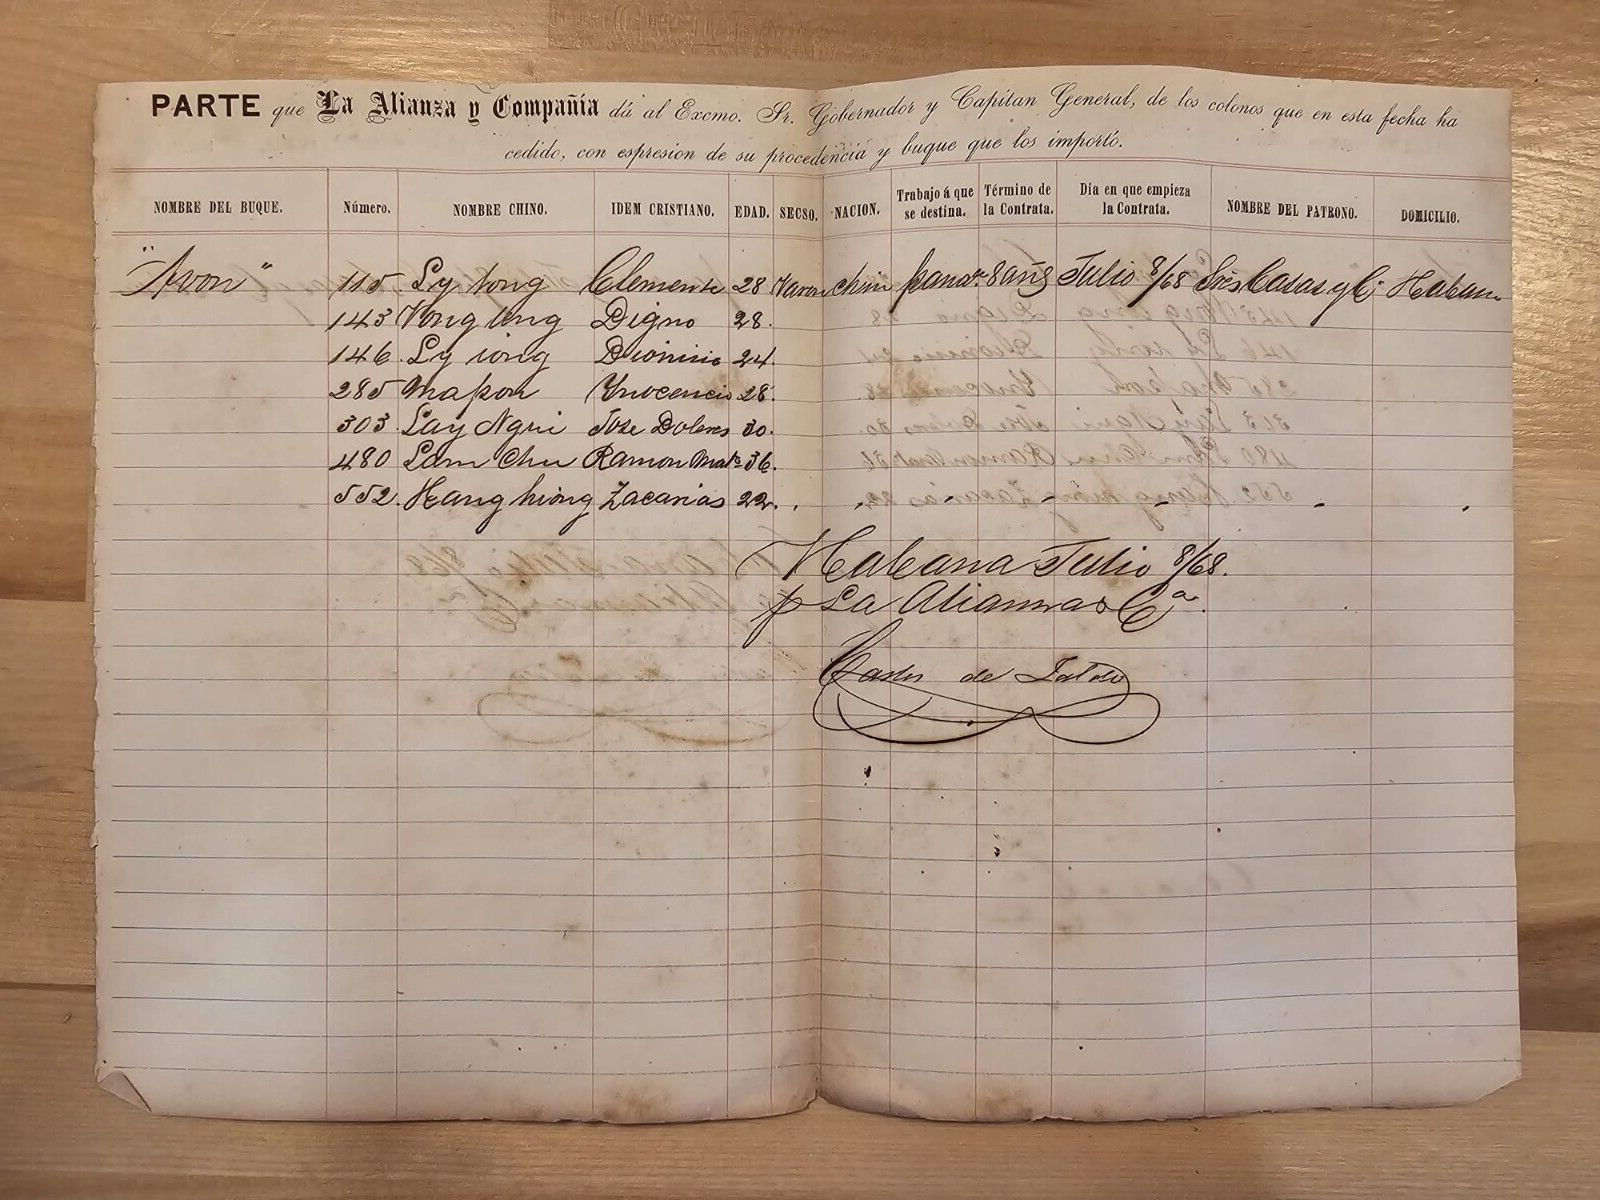 PARTE que La Alianza y Compañía dá al Excmo. Sr. Gobernador y Capitan General, de los colonos que en esta fecha ha
cedido, con espresion de su procedencia y buque que los importó.
NOMBRE DEL BUQUE. Número. NOMBRE CHINO. IDEM CRISTIANO. EDAD. SECSO. NACION. Trabajo á que se destina. Término de la Contrata. Dia en que empieza la Contrata. NOMBRE DEL PATRONO. DOMICILIO.
"Avon" 115 Ly tong Clemente 28 Varon chin 8 añs Julio 8/68 Sres Casas y Ca Habana
143 Vong ung Digno 28.
146. Ly iong Dionisio 24
285 Mapon Ynocencio 28.
303. Lay Ngui Jose Dolores 30.
480 Lam Chu Ramon Mata 36.
552. Hang hiong Zacarias 22.
Habana Julio 8/68.
p La Alianza & Ca.
de